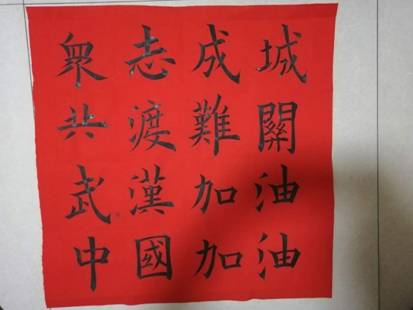 衆志成城
共渡難關
武漢加油
中國加油